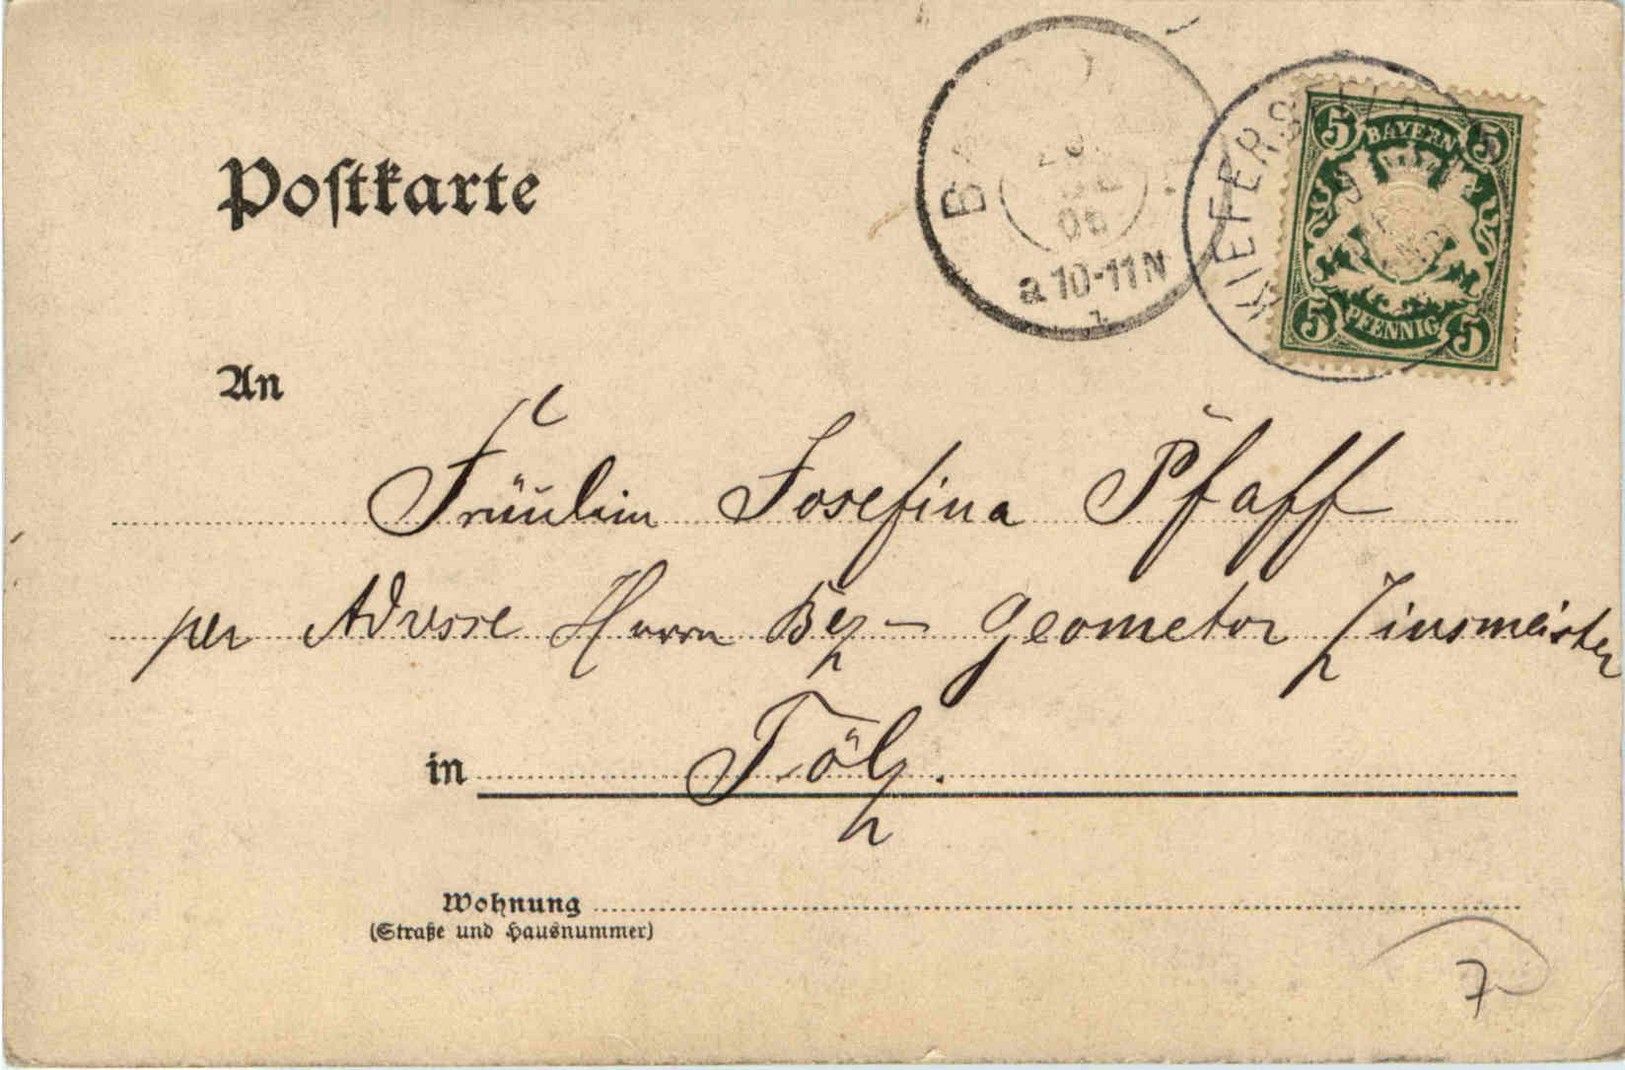 Postkarte
BAYERN
5 5
PFENNIG
5 5
KIEFERS
06
a 10-11 N
An
Fräulein Josefina Pfaff
per Adresse Herrn Bez- Geometer Zinsmeister
in Tölz.
Wohnung
(Straße und Hausnummer)
7